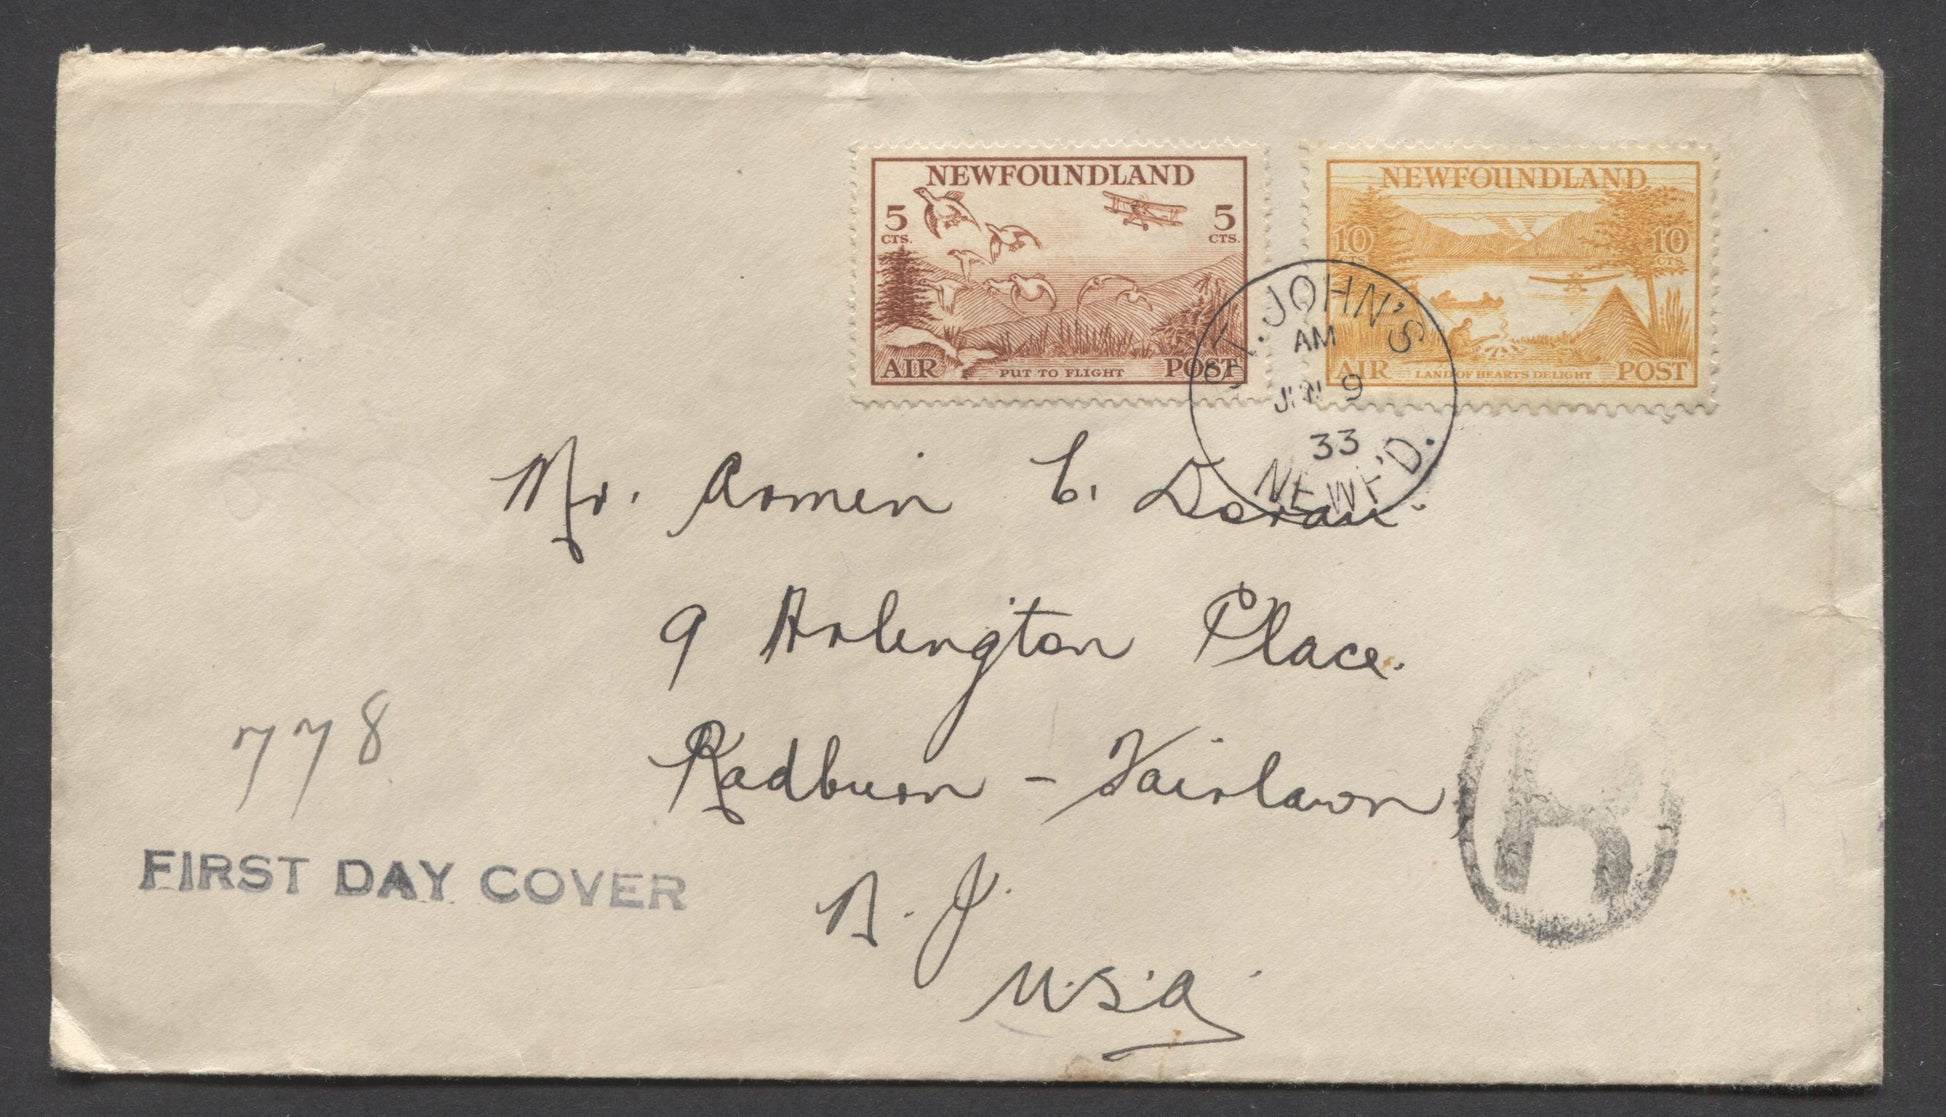 NEWFOUNDLAND
5 CTS. 5 CTS.
AIR PUT TO FLIGHT POST
NEWFOUNDLAND
10 CTS. 10 CTS.
AIR LAND OF HEARTS DELIGHT POST
ST. JOHN'S
AM
JUN 9
33
NEWF'D.
Mr. Armin C. Doran.
9 Arlington Place.
Radburn - Fairlawn,
N. J.
U.S.A.
778
FIRST DAY COVER
R